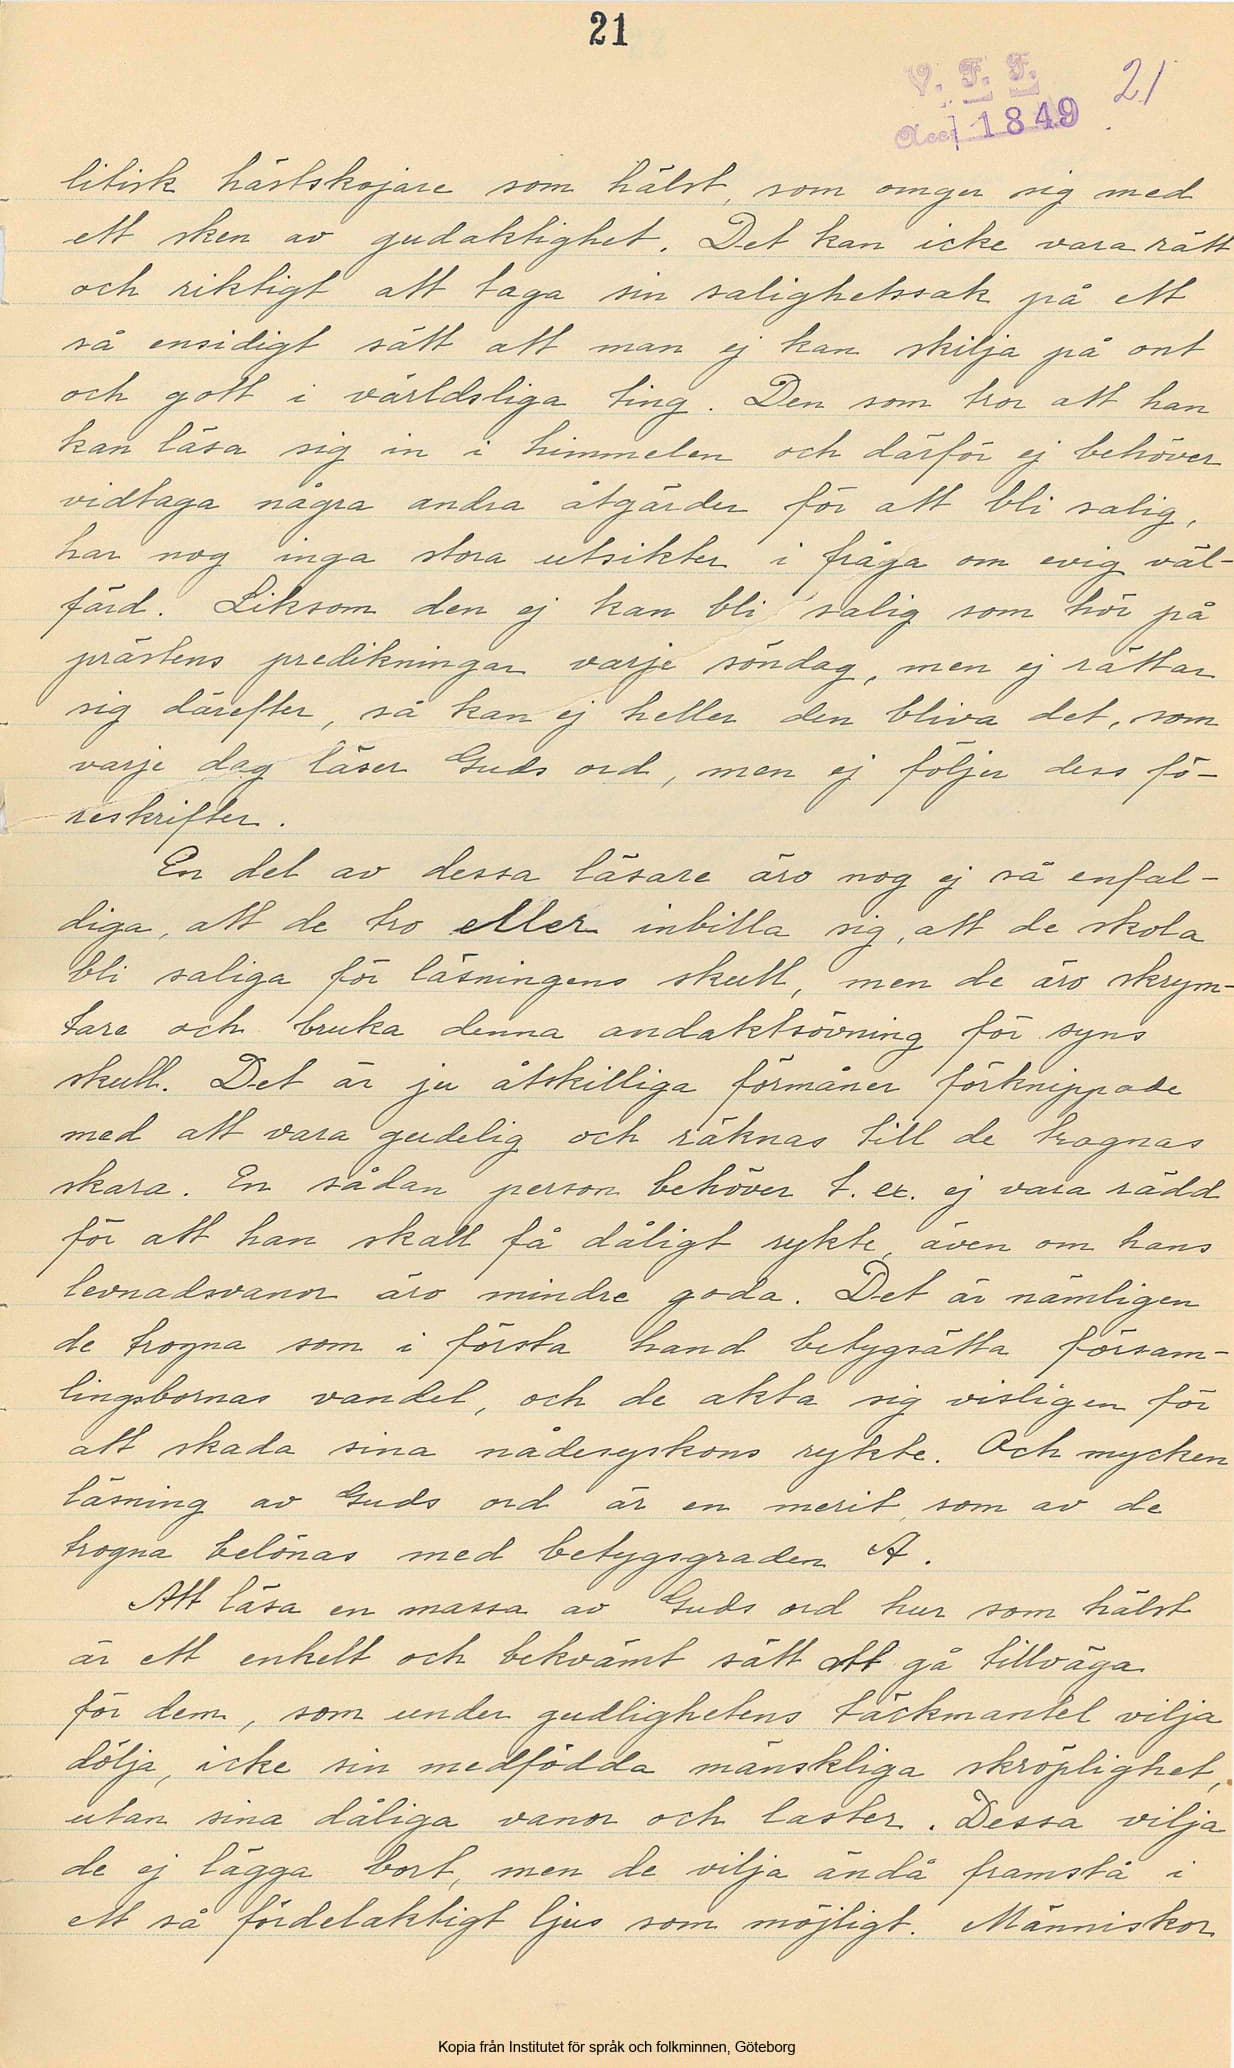 21
V. F. F. 21
Acc. 1849
litisk hästskojare som hälst, som omger sig med
ett sken av gudaktighet. Det kan icke vara rätt
och riktigt att taga sin salighetssak på ett
så ensidigt sätt att man ej kan skilja på ont
och gott i världsliga ting. Den som tror att han
kan läsa sig in i himmelen och därför ej behöver
vidtaga några andra åtgärder för att bli salig,
har nog inga stora utsikter i fråga om evig väl-
färd. Liksom den ej kan bli salig som hör på
prästens predikningar varje söndag, men ej rättar
sig därefter, så kan ej heller den bliva det, som
varje dag läser Guds ord, men ej följer dess fö-
reskrifter.
En del av dessa läsare äro nog ej så enfal-
diga, att de tro eller inbilla sig, att de skola
bli saliga för läsningens skull, men de äro skrym-
tare och bruka denna andaktsövning för syns
skull. Det är ju åtskilliga förmåner förknippade
med att vara gudelig och räknas till de trognas
skara. En sådan person behöver t. ex. ej vara rädd
för att han skall få dåligt rykte, även om hans
levnadsvanor äro mindre goda. Det är nämligen
de trogna som i första hand betygsätta försam-
lingsbornas vandel, och de akta sig visligen för
att skada sina nådesyskons rykte. Och mycken
läsning av Guds ord är en merit, som av de
trogna belönas med betygsgraden A.
Att läsa en massa av Guds ord hur som hälst
är ett enkelt och bekvämt sätt att gå tillväga
för dem, som under gudlighetens täckmantel vilja
dölja, icke sin medfödda mänskliga skröplighet,
utan sina dåliga vanor och laster. Dessa vilja
de ej lägga bort, men de vilja ändå framstå i
ett så fördelaktigt ljus som möjligt. Människor
Kopia från Institutet för språk och folkminnen, Göteborg